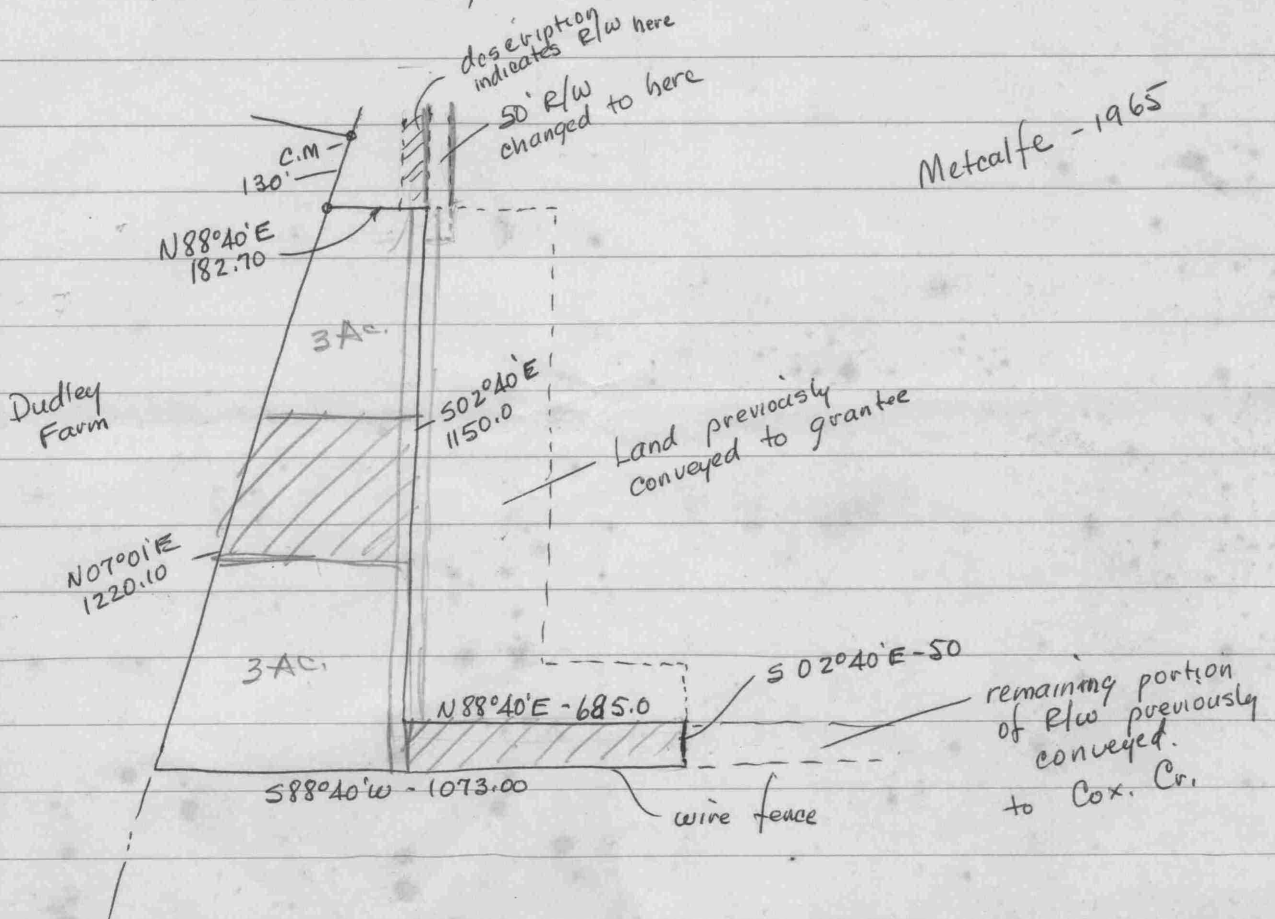 description
indicates R/W here
50' R/W
changed to here
Metcalfe - 1965
C.M
130'
N88°40'E
182.70
3 Ac.
Dudley
Farm
S02°40'E
1150.0
Land previously
conveyed to grantee
N07°01'E
1220.10
3 Ac.
S 02°40'E-50
N88°40'E - 685.0
remaining portion
of R/W previously
conveyed.
to Cox. Cr.
S88°40'W - 1073.00
wire fence